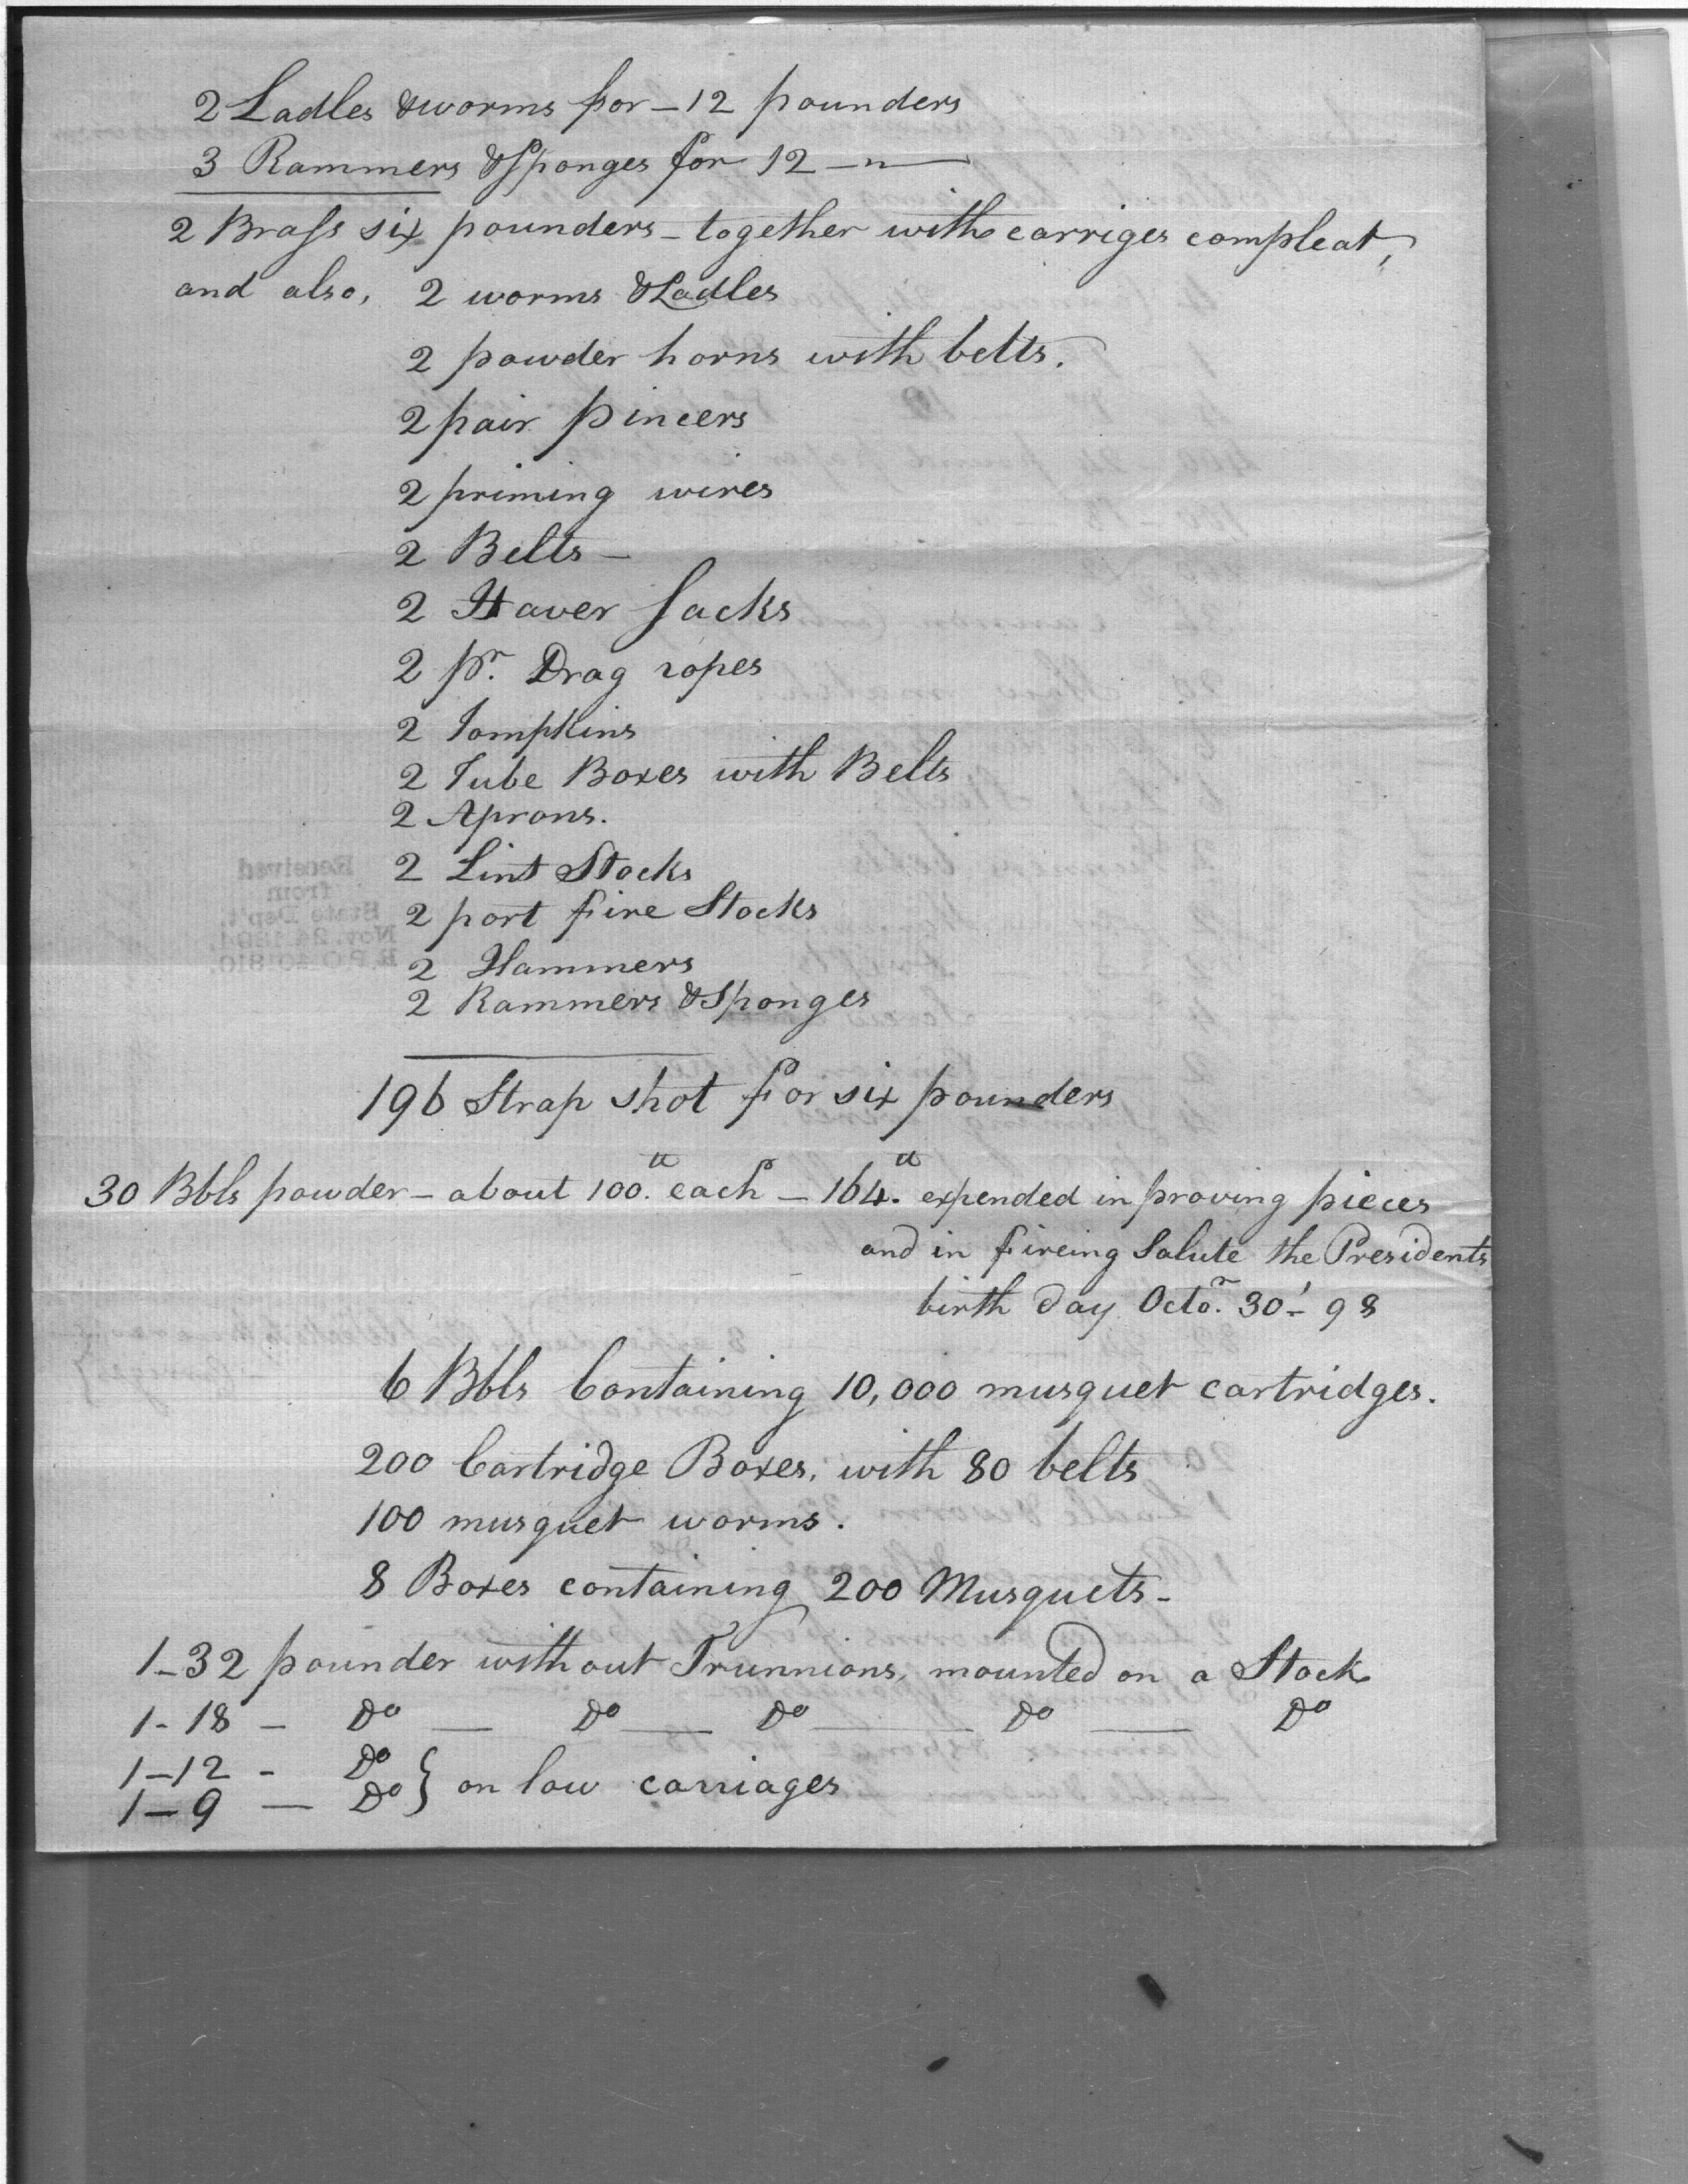 2 Ladles & worms for – 12 pounders
3 Rammers & Sponges for 12 — " —
2 Braſs six pounders – together with carriges compleat,
and also, 2 worms & Ladles
2 powder horns with belts.
2 pair pincers
2 priming wires
2 Belts –
2 Haver Sacks
2 pr. Drag ropes
2 Tompkins
2 Tube Boxes with Belts
2 Aprons.
2 Lint Stocks
2 port fire Stocks
2 Hammers
2 Rammers & Sponges
196 Strap shot for six pounders
30 Bbls powder – about 100. each – 164. expended in proving pieces
and in fireing Salute the Presidents
birth day Octor. 30 – 98
6 Bbls Containing 10,000 musquet cartridges.
200 Cartridge Boxes, with 80 belts
100 musquet worms.
8 Boxes containing 200 Musquets –
1 – 32 pounder without Trunnions, mounted on a Stock
1 - 18 – Do — Do — Do — Do — Do
1 – 12 - Do
1 – 9 — Do } on low carriages
Received
from
State Dep't.
Nov. 24 1894